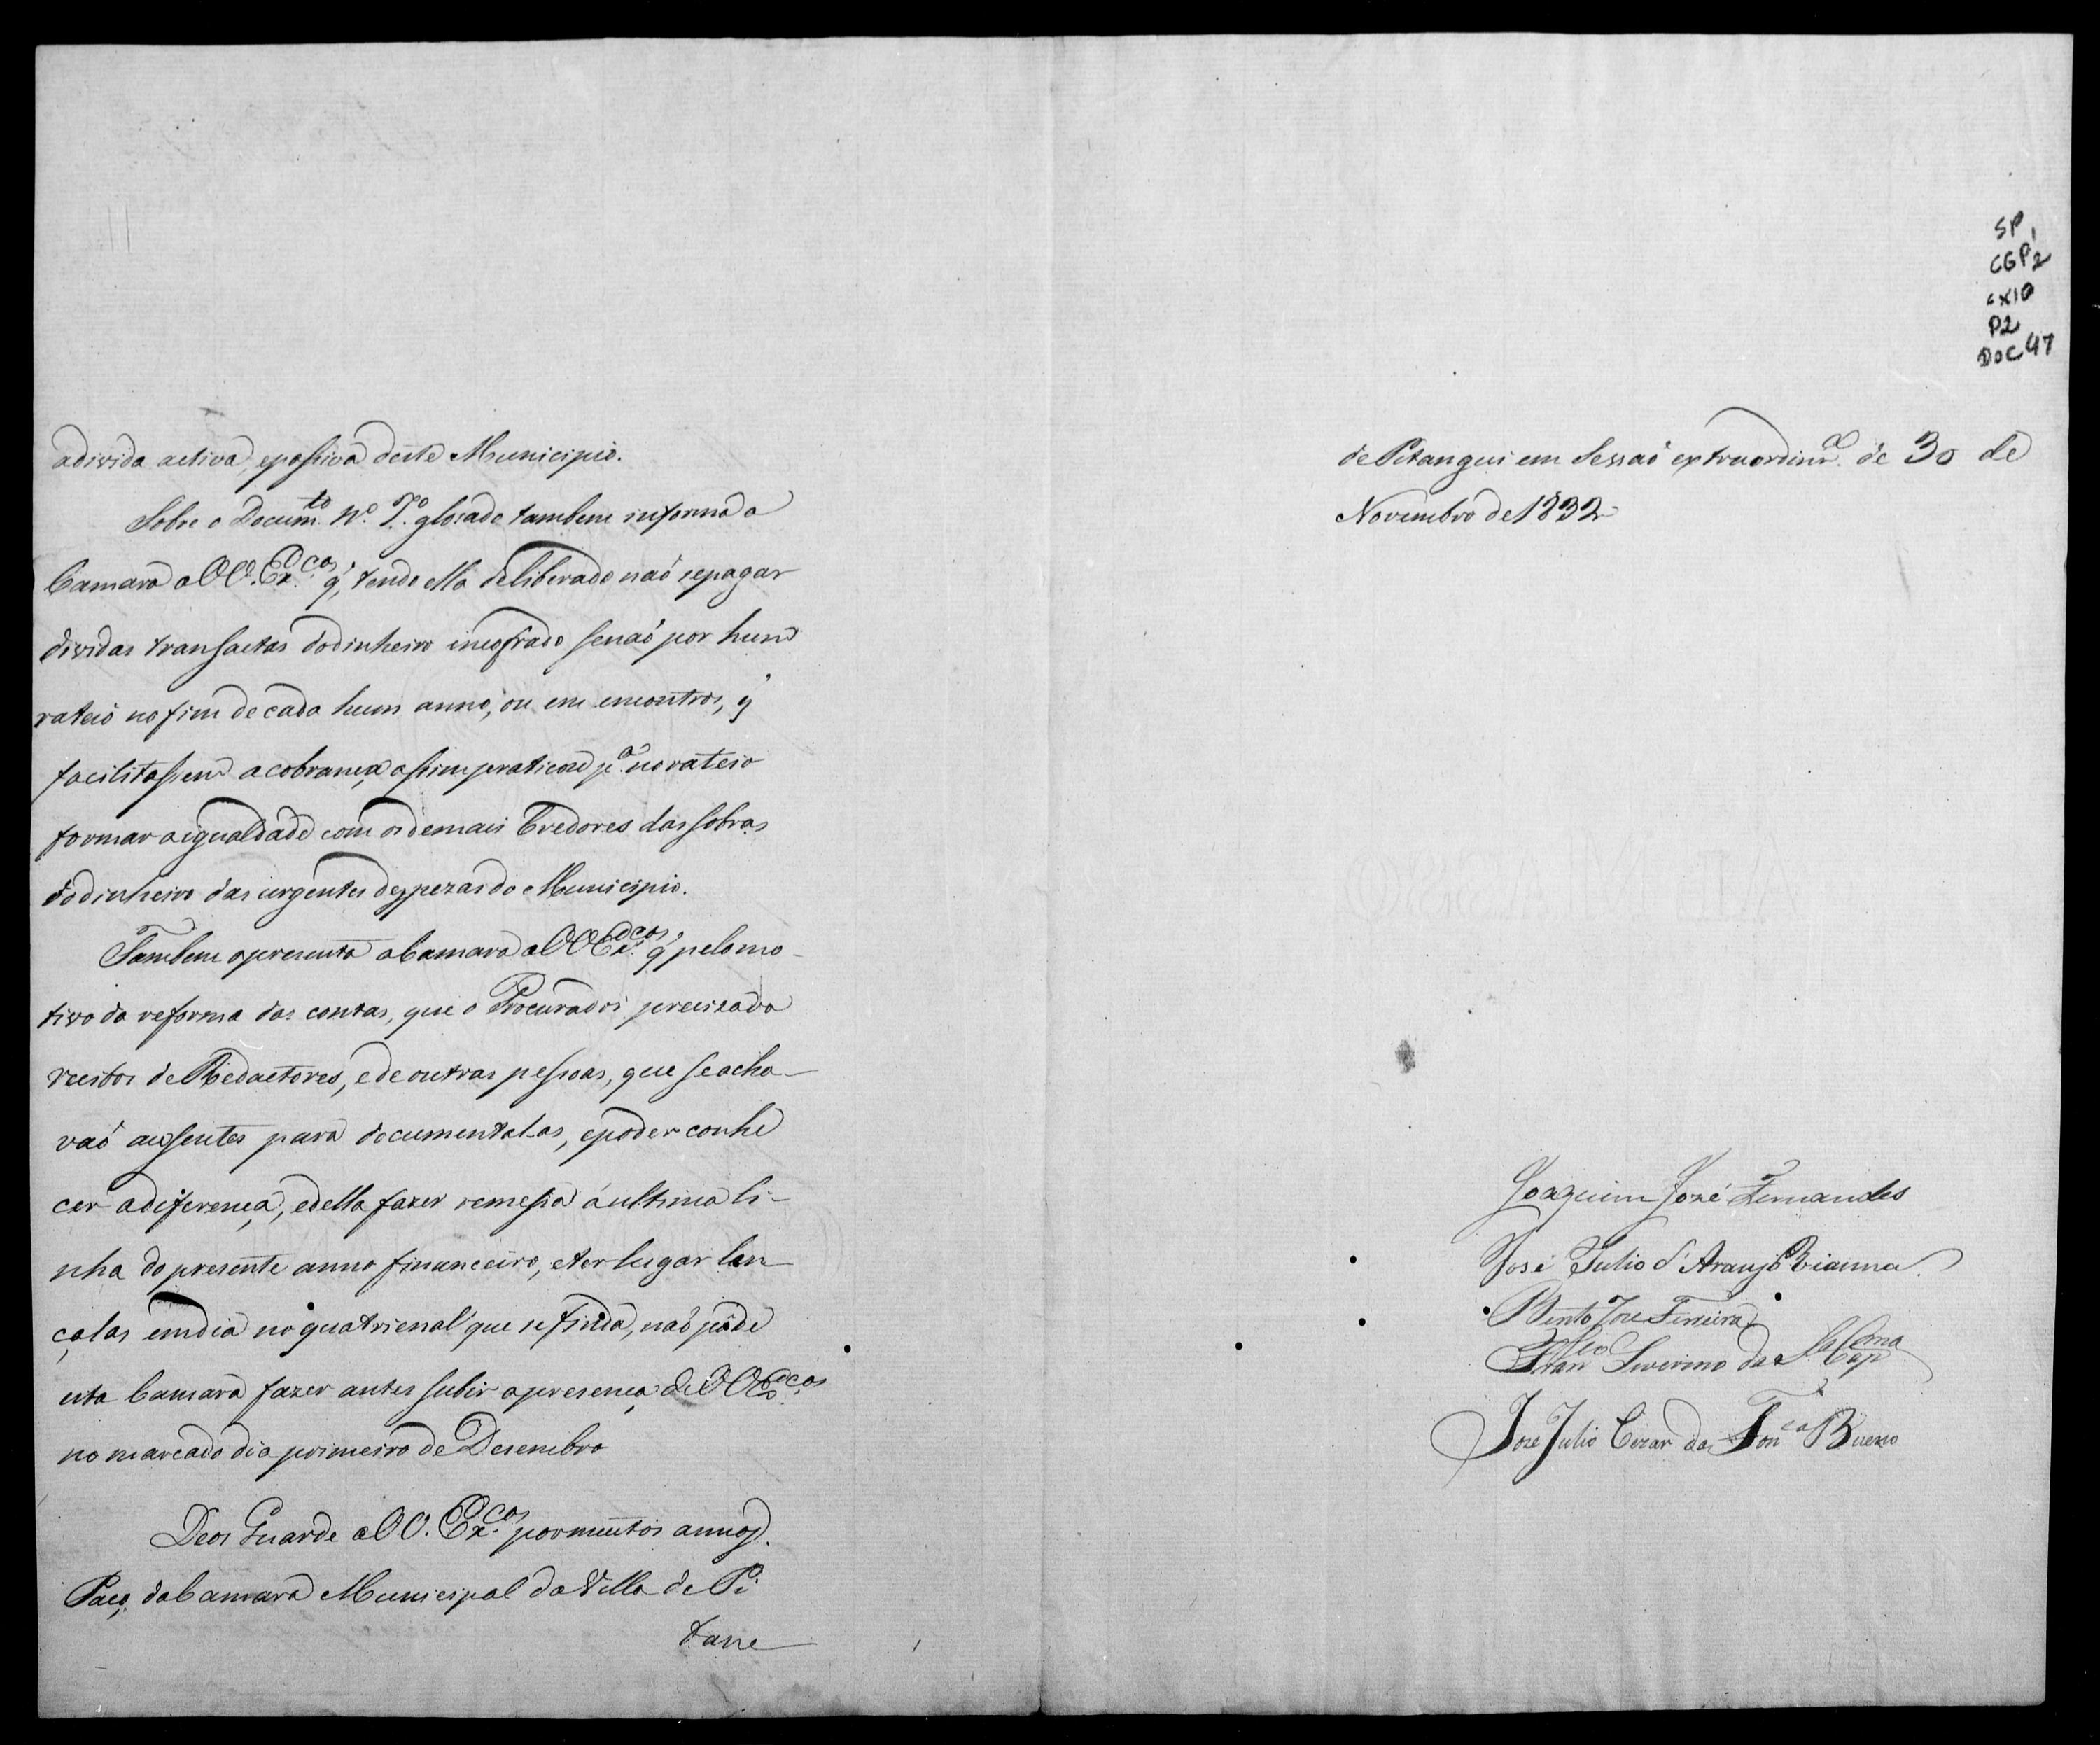 adivida activa, epassiva deste Municipio.
Sobre o Docum.to N.o 7.o glosado tambem informa a
Camara a VV. Ex.cas q', tendo ella deliberado naõ sepagar
dividas transactas dodinheiro incofrado senaõ por hum
rateio no fim de cada hum anno, ou em encontros, q'
facilitassem a cobrança, assim praticou p.a no rateio
formar a igualdade com os demais Credores das sobras
do dinheiro das urgentes despezas do Municipio.
Tambem apresenta a Camara a VV Ex.cas q' pelo mo-
tivo da reforma das contas, que o Procurador precizava
recibos de Redactores, e de outras pessoas, que se acha-
vaõ ausentes para documentalas, epoder conhe
cer a diferença, edella fazer remessa á ultima li-
nha do presente anno financeiro, eter lugar lan-
çalas em dia no quatrienal que se finda, naõ pôde
esta Camara fazer antes subir apresença de VV Ex.cas
no marcado dia primeiro de Desembro
Deos Guarde a VV. Ex.cas por muitos annos.
Paço da Camara Municipal da Villa de Pi
tan
SP 1
CGP2
cx10
P2
DOC 47
de Pitangui em Sessaõ extraordinr.a de 30 de
Novembro de 1832
Joaquim José Fernandes
José Julio d'Araujo Vianna
Bento Joze Ferreira
Fran.co Severino da
Joze Julio Cezar da Fon.ca Bueno